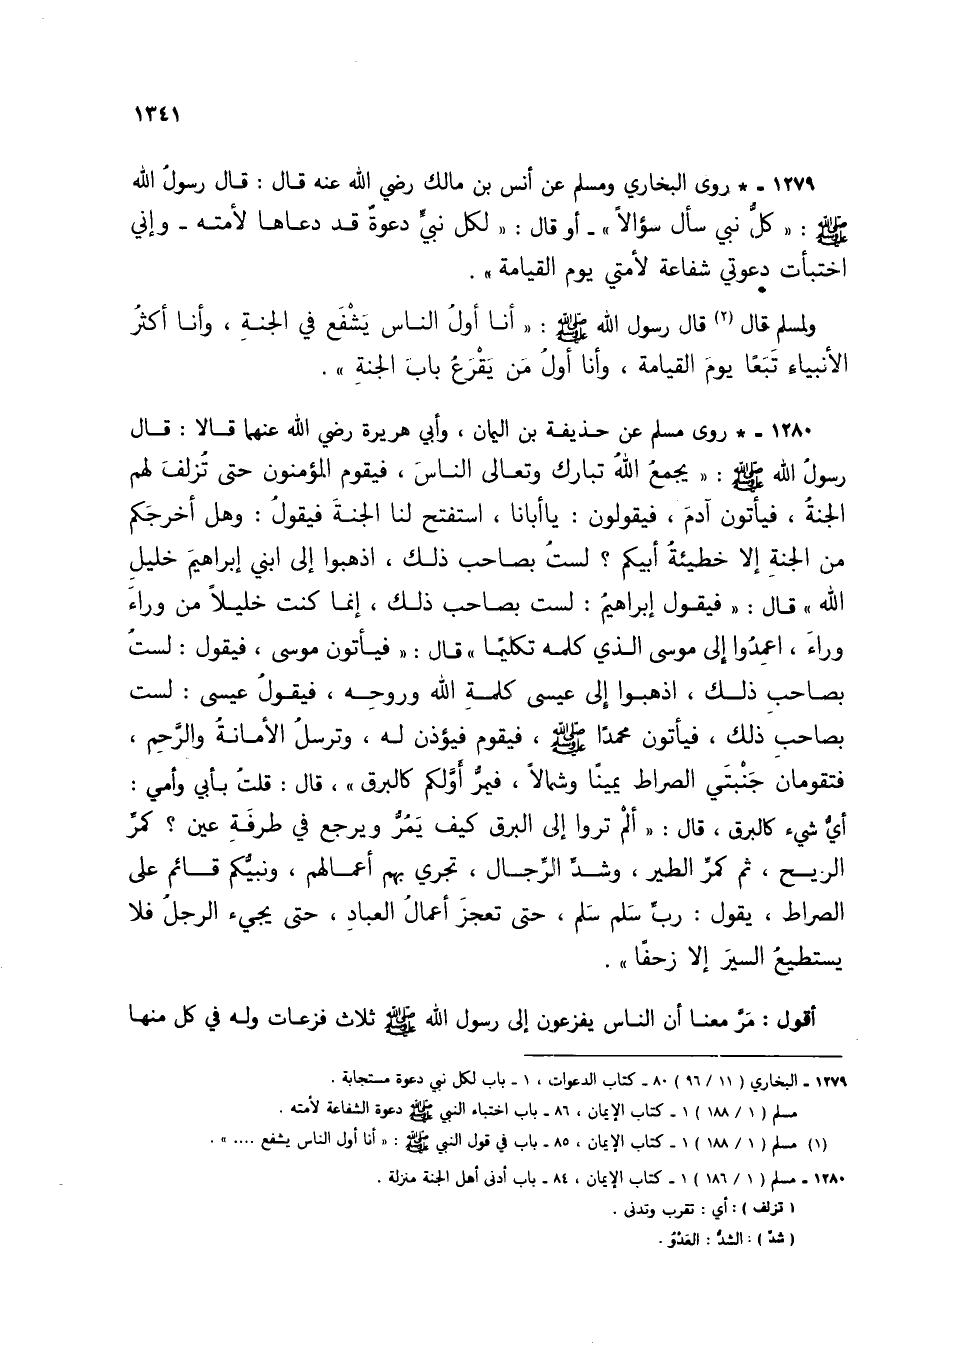 ١٣٤١
١٢٧٩ - * روى البخاري ومسلم عن أنس بن مالك رضي الله عنه قال : قال رسولُ الله
ﷺ : « كلُّ نبي سأل سؤالاً » - أو قال : « لكل نبيٍّ دعوةٌ قد دعاها لأمته - وإني
اختبأت دعوتي شفاعة لأمتي يوم القيامة » .
ولمسلم قال (٢) قال رسول الله ﷺ : « أنا أولُ الناس يَشْفَع في الجنةِ ، وأنا أكثرُ
الأنبياء تَبَعًا يومَ القيامة ، وأنا أولُ مَن يَقْرَعُ بابَ الجنةِ » .
١٢٨٠ - * روى مسلم عن حذيفة بن اليمان ، وأبي هريرة رضي الله عنهما قالا : قال
رسولُ الله ﷺ : « يجمعُ اللهُ تبارك وتعالى الناسَ ، فيقوم المؤمنون حتى تُزلفَ لهم
الجنةُ ، فيأتون آدمَ ، فيقولون : ياأبانا ، استفتح لنا الجنةَ فيقولُ : وهل أخرجَكم
من الجنةِ إلا خطيئةُ أبيكم ؟ لستُ بصاحب ذلك ، اذهبوا إلى ابني إبراهيمَ خليلِ
الله » قال : « فيقول إبراهيمُ : لست بصاحب ذلك ، إنما كنت خليلاً من وراءَ
وراءَ ، اعمِدُوا إلى موسى الذي كلمه تكليمًا » قال : « فيأتون موسى ، فيقول : لستُ
بصاحبِ ذلك ، اذهبوا إلى عيسى كلمةِ الله وروحِه ، فيقولُ عيسى : لست
بصاحبِ ذلك ، فيأتون محمدًا ﷺ ، فيقوم فيؤذن له ، وترسلُ الأمانةُ والرَّحِم ،
فتقومان جَنْبتَي الصراط يمينًا وشمالاً ، فيمرُّ أوَّلكم كالبرق » ، قال : قلتُ بأبي وأمي :
أيُّ شيء كالبرق ، قال : « ألمْ تروا إلى البرق كيف يَمُرُّ ويرجع في طرفَةِ عين ؟ كمرِّ
الريح ، ثم كمرِّ الطير ، وشدِّ الرِّجال ، تجري بهم أعمالهم ، ونبيُّكم قائم على
الصراط ، يقول : ربِّ سَلم سَلم ، حتى تعجزَ أعمالُ العبادِ ، حتى يجيء الرجلُ فلا
يستطيعُ السيرَ إلا زحفًا » .
أقول : مَرَّ معنا أن الناس يفزعون إلى رسول الله ﷺ ثلاث فزعات وله في كل منها
١٢٧٩ - البخاري ( ١١ / ٩٦ ) ٨٠ - كتاب الدعوات ، ١ - باب لكل نبي دعوة مستجابة .
مسلم ( ١ / ١٨٨ ) ١ - كتاب الإيمان ، ٨٦ - باب اختباء النبي ﷺ دعوة الشفاعة لأمته .
(١) مسلم ( ١ / ١٨٨ ) ١ - كتاب الإيمان ، ٨٥ - باب في قول النبي ﷺ : « أنا أول الناس يشفع .... » .
١٢٨٠ - مسلم ( ١ / ١٨٦ ) ١ - كتاب الإيمان ، ٨٤ - باب أدنى أهل الجنة منزلة .
( تزلف ) : أي : تقرب وتدنى .
( شدّ ) : الشدُّ : العَدْوُ .